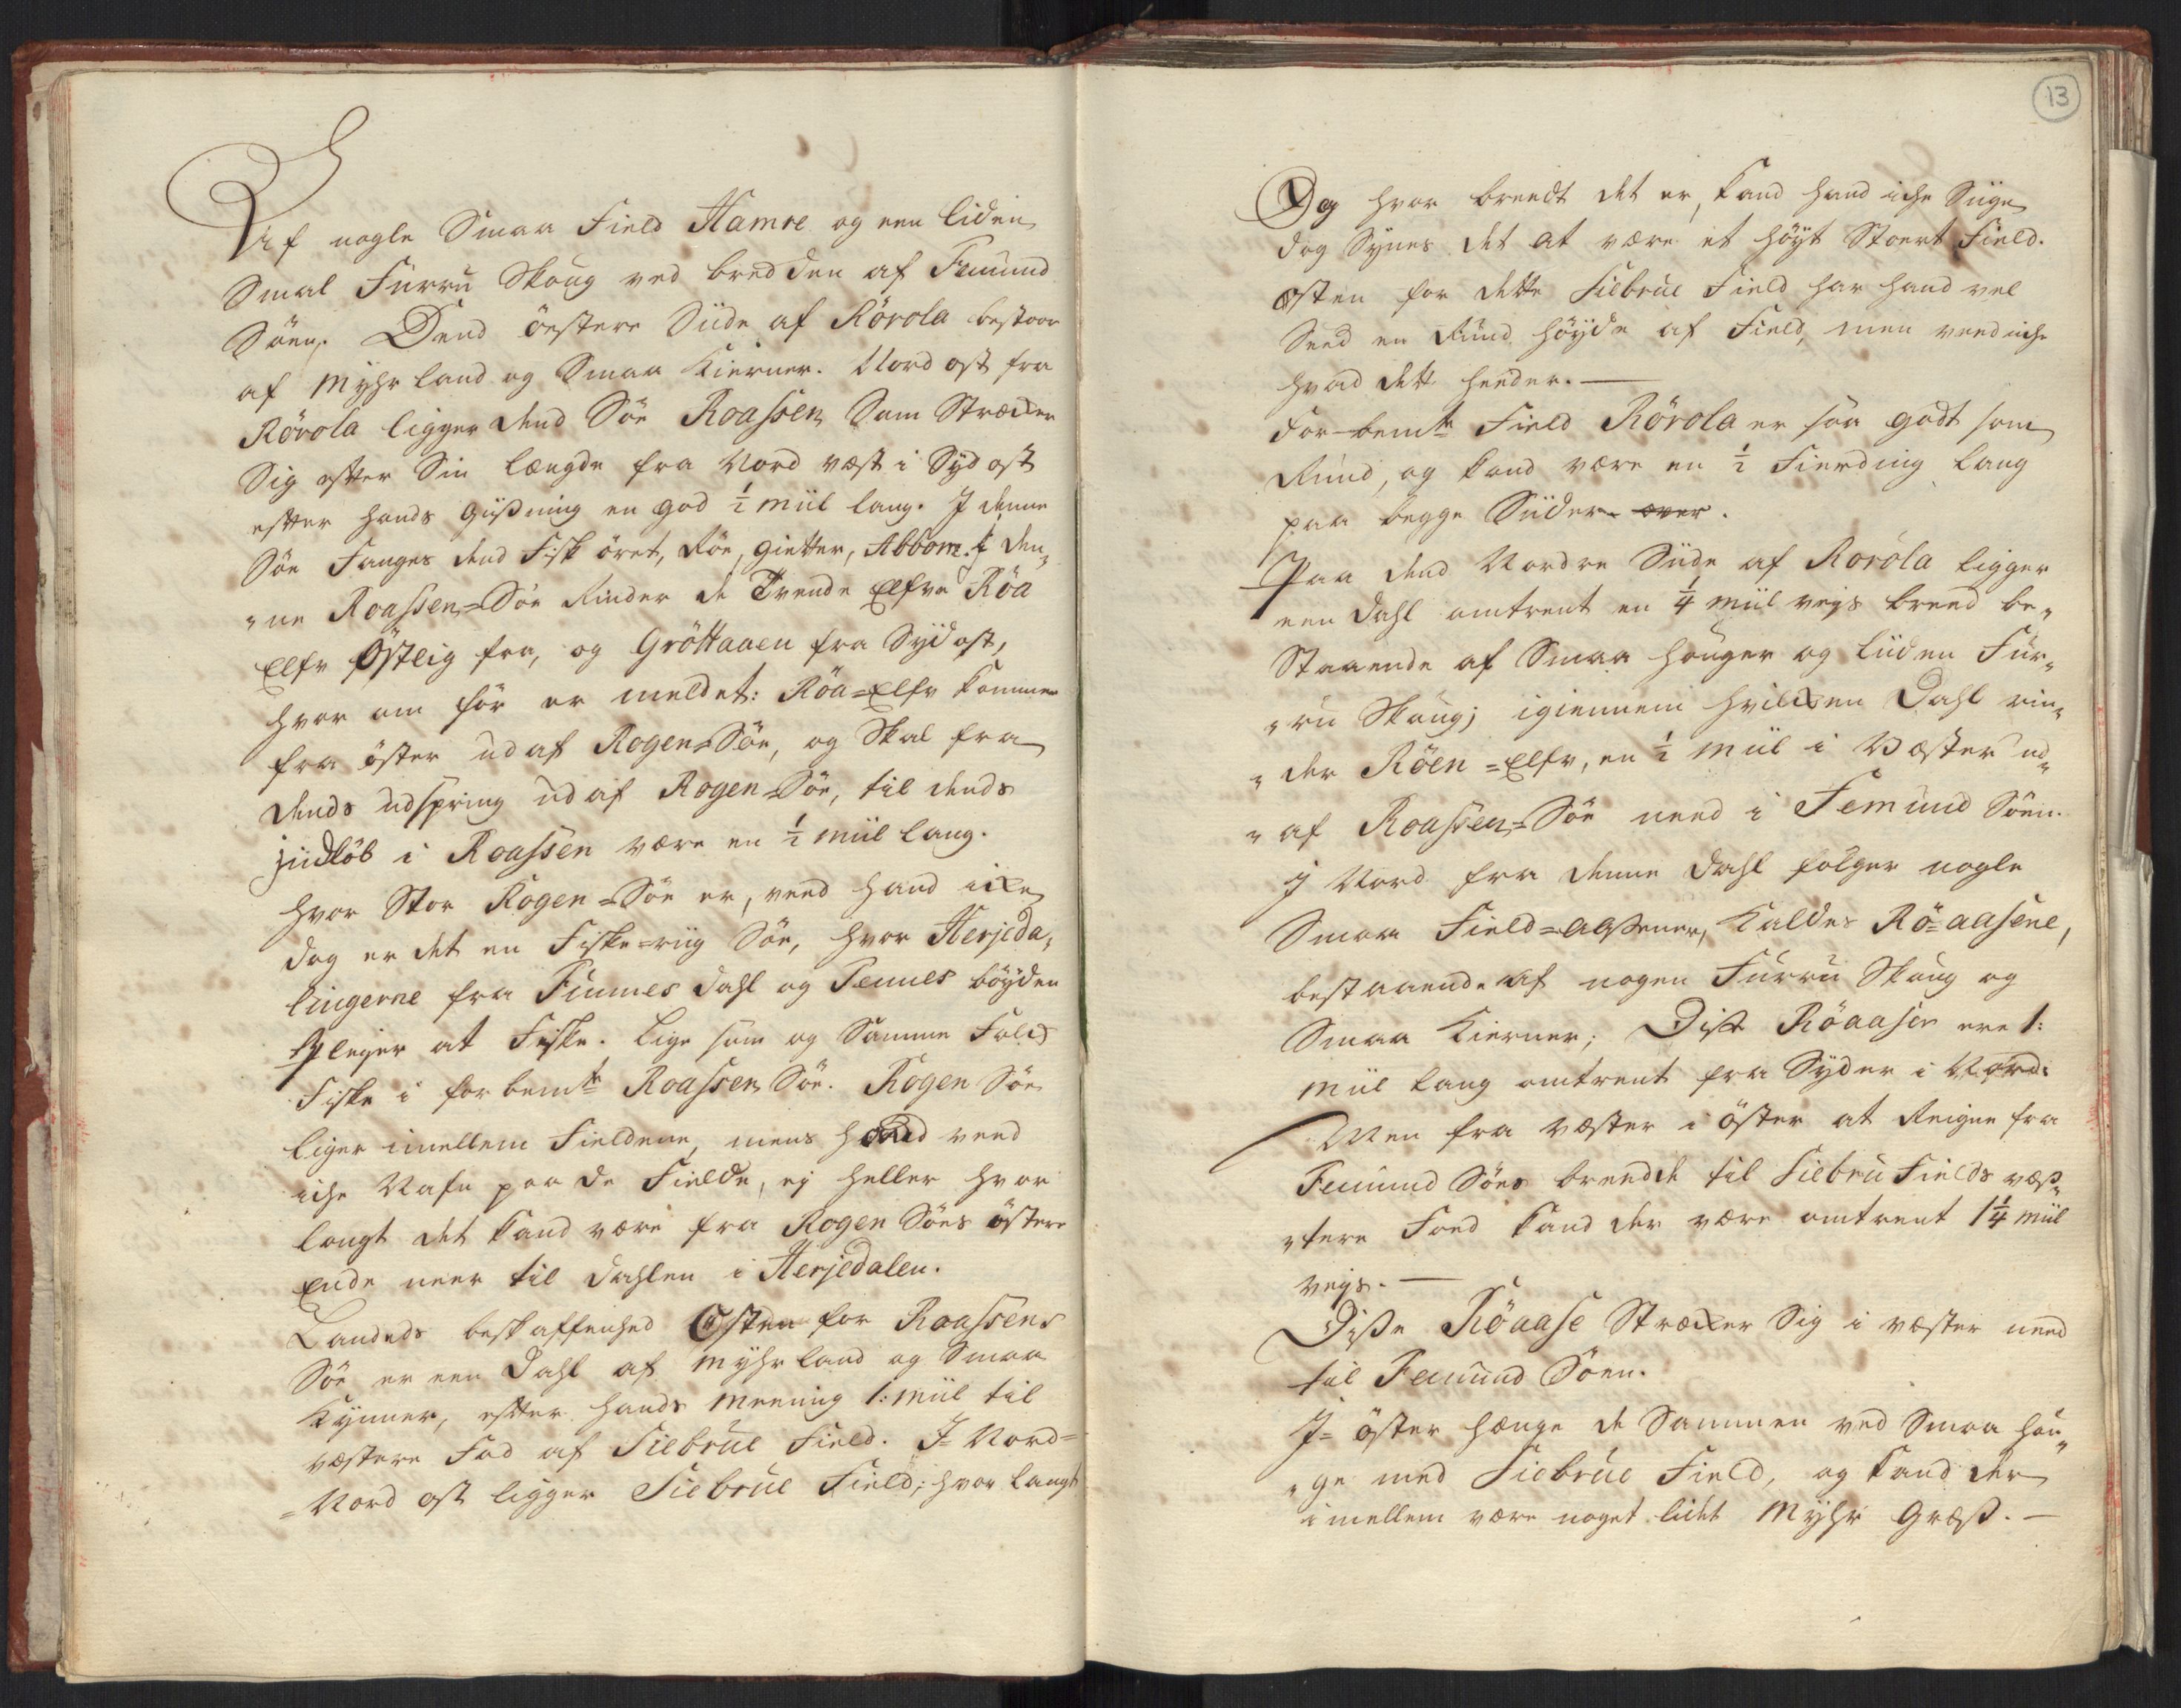 Af nogle Smaa Field Hamre og een liden
Smal Furru Skoug ved bredden af Femund
Söen. Dend öestere Siide af Rörola bestaar
af Myhr land og Smaa Kierner. Nord ost fra
Rörola ligger dend Söe Roassen, Som Stræcker
Sig efter Sin længde fra Nord væst i Syd ost
efter hands güsning en god ½ miil lang. I denne
Söe Fanges dend Fisk öret, Röe, gietter, Abbom. I den„
„ne Roassen=Söe Rinder de Tvende Elfve Röa
Elfv Östlig fra, og Gröttaaen fra Syd ost,
hvor om för er meldet: Röa=Elfv kommer
fra öster ud af Rogen=Söe, og Skal fra
dends udspring ud af Rogen=Söe, til dends
jndlöb i Roassen være en ½ miil lang.
hvor Stor Rogen=Söe er, veed hand icke
dog er det en Fiske=riig Söe, hvor Herjeda„
lingerne fra Funnes dahl og Tennes böyden
Pleyer at Fiske. Lige som og Samme Folck
Fiske i forbemte Roassen Söe. Rogen Söe
liger imellem Fieldene, mens hand veed
iche Nafn paa de Fielde, ej heller hvor
langt det kand være fra Rogen Söes östere
Ende neer til dahlen i Herjedalen.
Landeds beskaffenhed Östen for Roassens
Söe er een Dahl af Myhr land og Smaa
Kynner, efter hands meening 1: miil til
væstere Fod af Siebrue Field. I Nord=
=Nord ost ligger Siebrue Field; hvor langt
13
Og hvor breedt det er, kand hand iche Siige
dog Synes det at være et höyt Stoert Field.
östen for dette Siebrue Field har hand vel
Seed en Rund höyde af Field, men veed iche
hvad dett heeder. —
For-bemte Field Rörola er saa godt som
Rund, og kand være en ½ Fierding lang
paa begge Siider. over.
Paa dend Nordre Siide af Roróla ligger
een dahl omtrent en ¼ miil veys breed be„
Staaende af Smaa houger og liiden Fur„
„ru Skoug; igiennem hvilcken Dahl rin„
„der Röen=Elfv, en ½ miil i Væster ud„
„af Roassen=Söe need i Femund Söen.
I Nord fra denne dahl fölger nogle
Smaa Field=Aassener, Kaldes Rö=aasene,
bestaaende af nogen Furru Skoug og
Smaa Kierner; Disse Röaaser ere 1:
miil lang omtrent fra Syder i Nord:
Men fra væster i öster at Reigne fra
Femund Söes breedde til Siebru Fields væs„
„tere Foed kand der være omtrent 1¼ miil
veys. —
Disse Röaase Stræcker Sig i væster need
til Femund Söen.
I= öster hænge de Sammen ved Smaa hou„
„ge med Siebrue Field, og kand der
imellem være noget lidet Myhr Græss. —